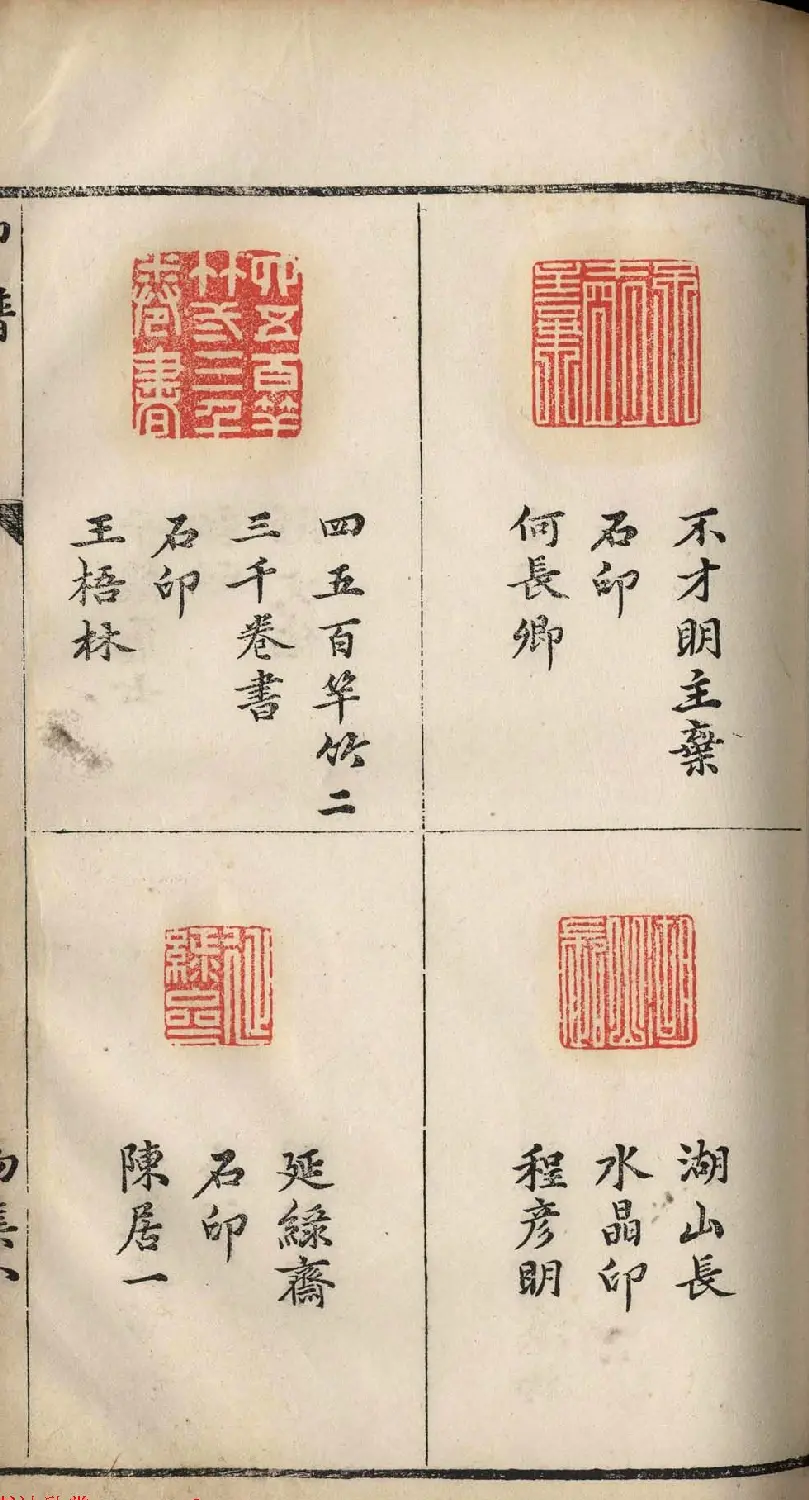 不才明主棄
石印
何長卿
四五百竿竹二
三千卷書
石印
王梧林
湖山長
水晶印
程彦明
延綠齋
石印
陳居一